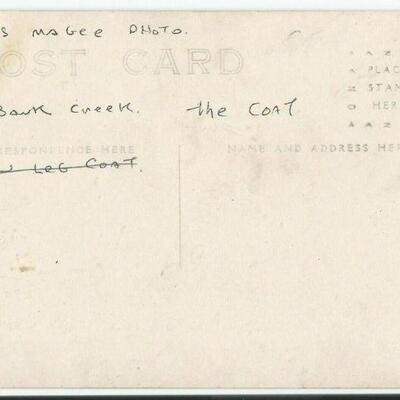 S MAGEE PHOTO.
OST CARD
PLAC
STAM
HER
BANK CREEK. the COAT
RESPONDENCE HERE NAME AND ADDRESS HER
LEG COAT.